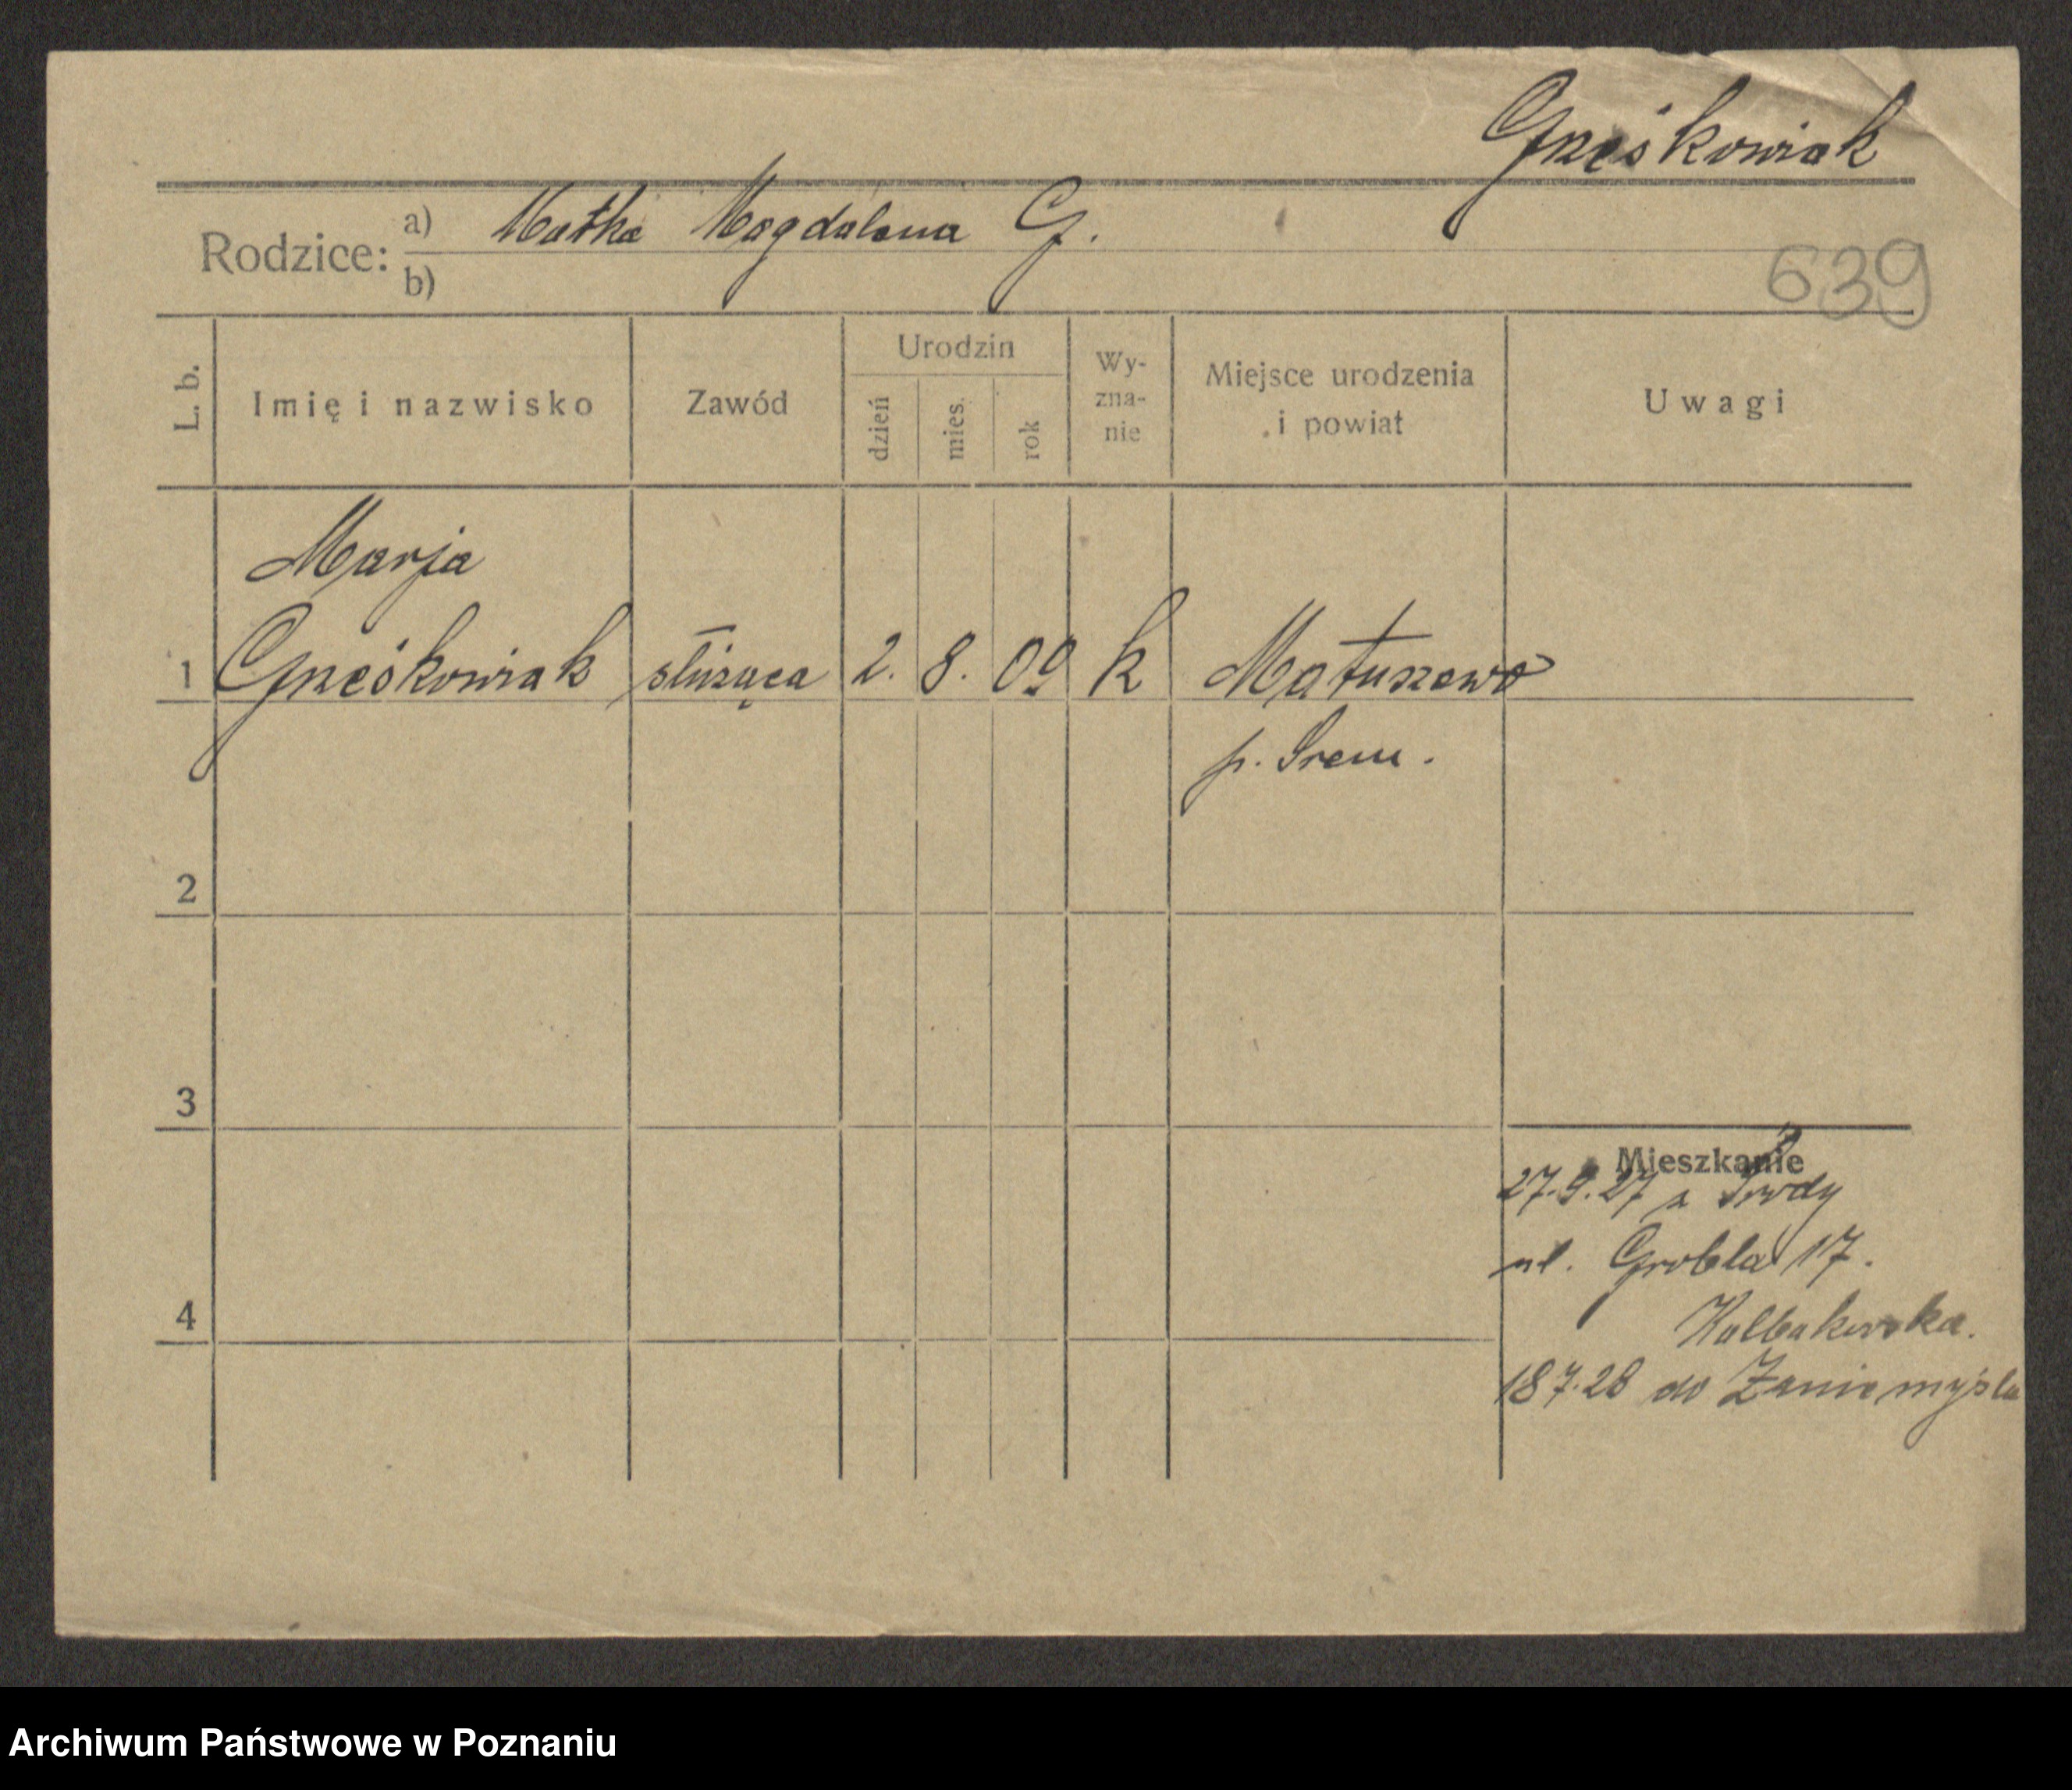 Grześkowiak
Rodzice: a) Matka Magdalena G.
b)
639
L. b. Imię i nazwisko Zawód Urodzin dzień mies. rok Wy- zna- nie Miejsce urodzenia i powiat Uwagi
Marja
1 Grześkowiak służąca 2. 8. 09 k Matuszewo
p. Śrem.
2
3
Mieszkanie
27.9.27 z Środy
ul. Grobla 17.
4
18 7.28 do Zaniemyśla
Archiwum Państwowe w Poznaniu